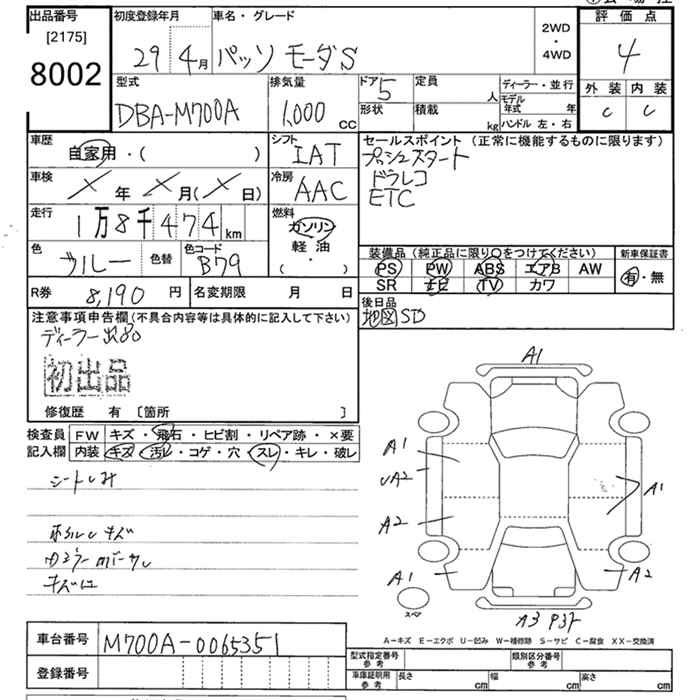 出品番号
[2175]
8002
初度登録年月
29 4月
車名・グレード
パッソ モーダS
2WD
・
4WD
評価点
4
外装 内装
C C
型式
DBA-M700A
排気量
1,000 CC
ドア 5
形状
定員
人
積載
kg
ディーラー・並行
モデル年式 年
ハンドル 左・右
車歴
自家用・( )
シフト
IAT
車検
X 年 X 月(X 日)
冷房
AAC
走行
1万8千474km
燃料
ガソリン
軽・油
( ・ )
色
ブルー
色替
色コード
B79
R券 8,190 円
名変期限 月 日
セールスポイント (正常に機能するものに限ります)
プッシュスタート
ドラレコ
ETC
装備品 (純正品に限り○をつけてください)
PS PW ABS エアB AW
SR ナビ TV カワ
新車保証書
有・無
後日品
地図 SD
注意事項申告欄(不具合内容等は具体的に記入して下さい)
ディーラー
初出品
修復歴 有 〔箇所 〕
検査員
記入欄
FW キズ・飛石・ヒビ割・リペア跡・×要
内装 キズ・汚レ・コゲ・穴・スレ・キレ・破レ
シートしみ
キズ
A1
A1
A2
A2
A1
A1
A2
スペア
A3
A−キズ E−エクボ U−凹み W−補修跡 S−サビ C−腐食 XX−交換済
車台番号 M700A-0065351
登録番号
型式指定番号
参考
類別区分番号
参考
車庫証明用
参考
長さ cm
幅 cm
高さ cm